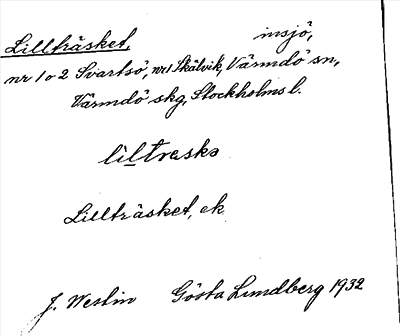 Lillträsket, insjö,
nr 1 o 2 Svartsö, nr 1 Skälvik, Värmdö sn,
Värmdö skg, Stockholms l.
liltrasks
Lillträsket, ek
J. Westin Gösta Lundberg 1932